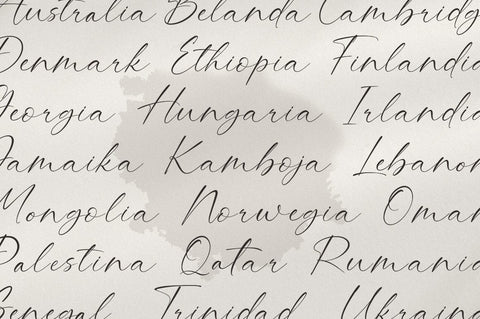 Australia Belanda Cambridg
Denmark Ethiopia Finlandia
Georgia Hungaria Irlandia
Jamaika Kamboja Lebanon
Mongolia Norwegia Oman
Palestina Qatar Rumania
Senegal Trinidad Ukraina